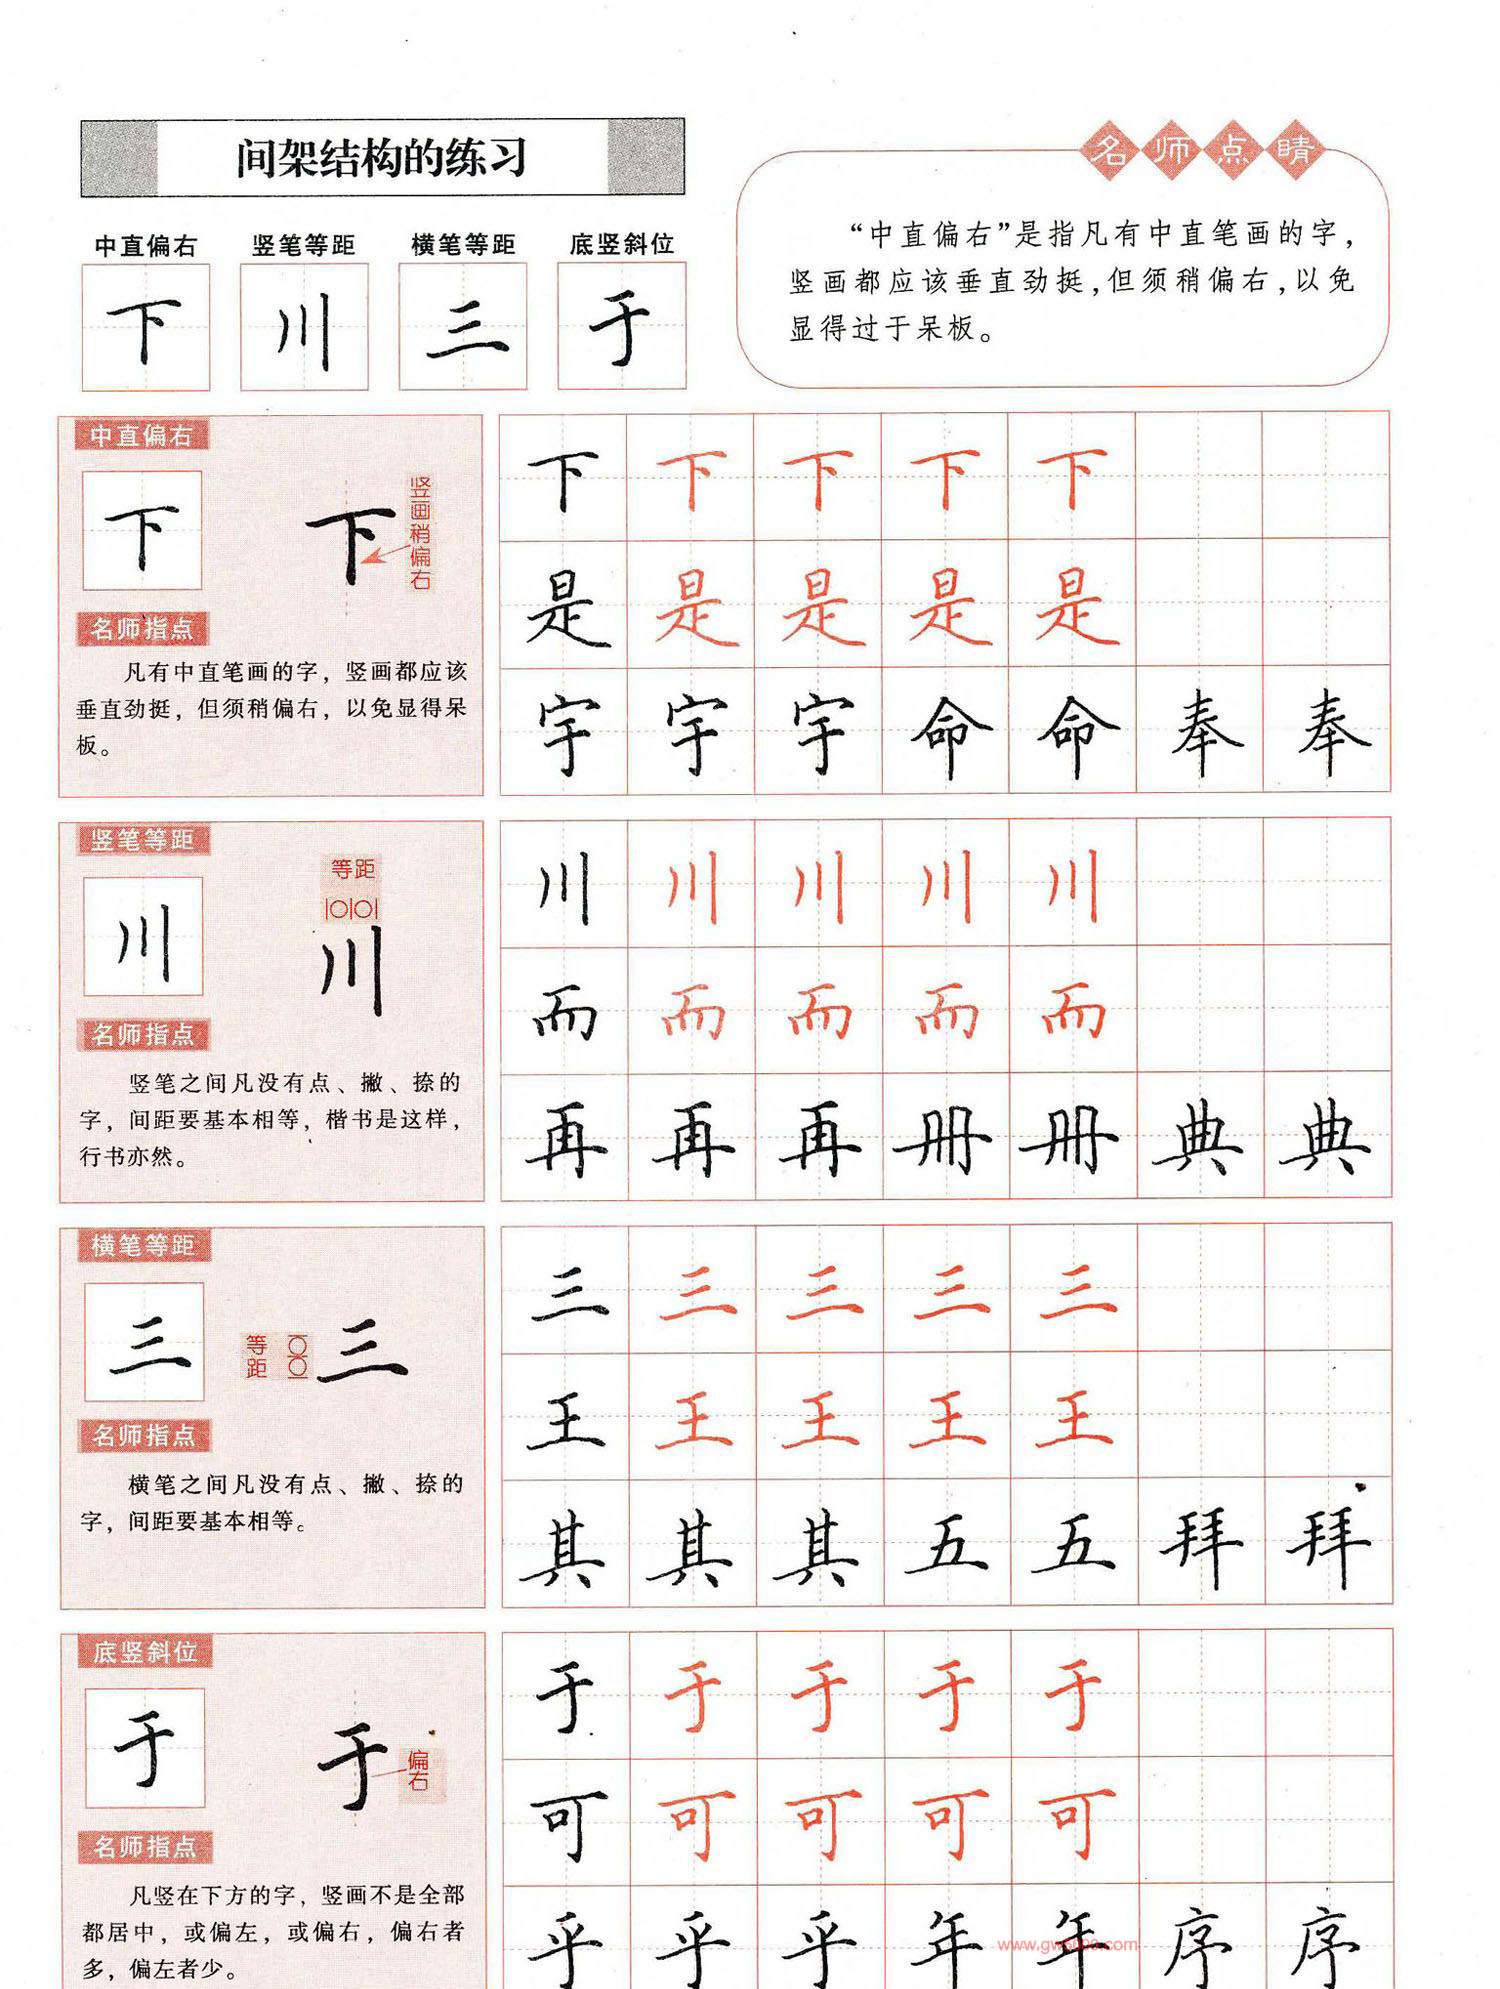 间架结构的练习
名师点睛
中直偏右 竖笔等距 横笔等距 底竖斜位
下 川 三 于
“中直偏右”是指凡有中直笔画的字，
竖画都应该垂直劲挺，但须稍偏右，以免
显得过于呆板。
中直偏右
下 下
竖画稍偏右
名师指点
凡有中直笔画的字，竖画都应该
垂直劲挺，但须稍偏右，以免显得呆
板。
下 下 下 下 下
是 是 是 是 是
宇 宇 宇 命 命 奉 奉
竖笔等距
等距
川 川
名师指点
竖笔之间凡没有点、撇、捺的
字，间距要基本相等，楷书是这样，
行书亦然。
川 川 川 川 川
而 而 而 而 而
再 再 再 册 册 典 典
横笔等距
三 等距 三
名师指点
横笔之间凡没有点、撇、捺的
字，间距要基本相等。
三 三 三 三 三
王 王 王 王 王
其 其 其 五 五 拜 拜
底竖斜位
于 于
偏右
名师指点
凡竖在下方的字，竖画不是全部
都居中，或偏左，或偏右，偏右者
多，偏左者少。
于 于 于 于 于
可 可 可 可 可
乎 乎 乎 年 年 序 序